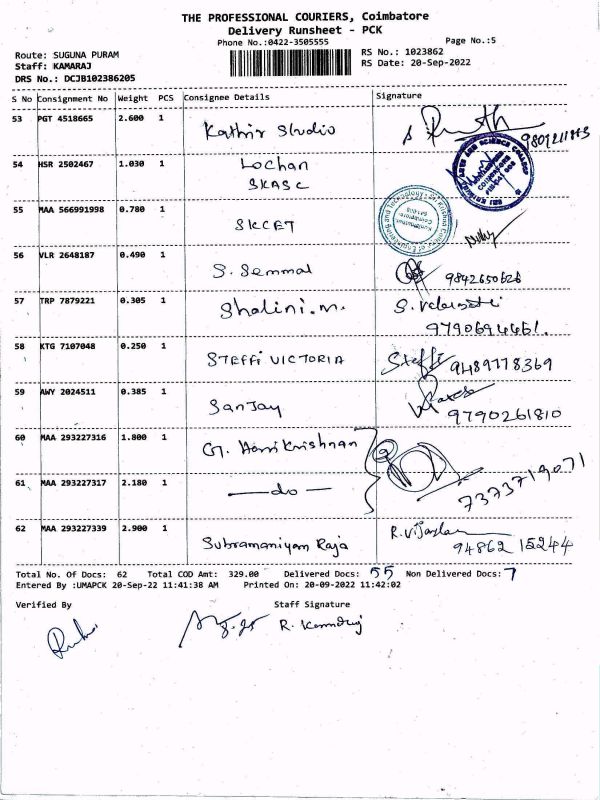 THE PROFESSIONAL COURIERS, Coimbatore
Delivery Runsheet - PCK
Phone No.:0422-3505555
Page No.:5
Route: SUGUNA PURAM
RS No.: 1023862
Staff: KAMARAJ
RS Date: 20-Sep-2022
DRS No.: DCJB102386205
S No Consignment No Weight PCS Consignee Details Signature
53 PGT 4518665 2.600 1 Kathir Studio
54 HSR 2502467 1.030 1 Lochan
SKASC
55 MAA 566991998 0.780 1 SKCET
56 VLR 2648187 0.490 1 S. Semmal 9842650626
57 TRP 7879221 0.305 1 Shalini.M.
9790694461.
58 KTG 7107048 0.250 1 STEFFI VICTORIA Steffi 9489778369
59 AWY 2024511 0.385 1 Sanjay 9790261810
60 MAA 293227316 1.800 1 G. Hari Krishnan
61 MAA 293227317 2.180 1 —do— 7373719071
62 MAA 293227339 2.900 1 Subramaniyam Raja 94862 15244
Total No. Of Docs: 62 Total COD Amt: 329.00 Delivered Docs: 55 Non Delivered Docs: 7
Entered By :UMAPCK 20-Sep-22 11:41:38 AM Printed On: 20-09-2022 11:42:02
Verified By Staff Signature